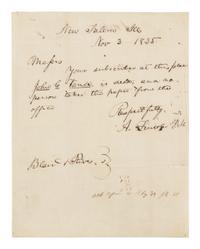 New Salem Ills
Nov 3 1835
Messrs
Your subscriber at this place
John C. is dead; and no
person takes the paper from the
office
Respectfully
A. Lincoln P.M.
Blair & Rives